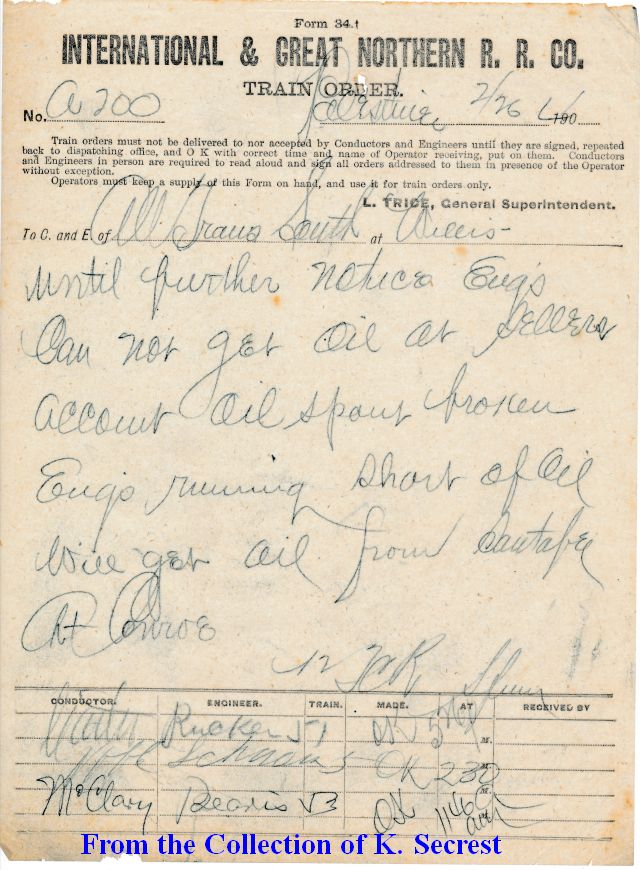 Form 34.
INTERNATIONAL & GREAT NORTHERN R. R. CO.
TRAIN ORDER.
No. A 200 Palestine 2/26 190
Train orders must not be delivered to nor accepted by Conductors and Engineers until they are signed, repeated
back to dispatching office, and O K with correct time and name of Operator receiving, put on them. Conductors
and Engineers in person are required to read aloud and sign all orders addressed to them in presence of the Operator
without exception.
Operators must keep a supply of this Form on hand, and use it for train orders only.
L. TRICE, General Superintendent.
To C. and E. of All Trains South at Willis
until further notice Eng's
Can not get oil at Sellers
account oil spout broken
Eng's running short of oil
will get oil from Santa Fe
At Conroe
12
CONDUCTOR. ENGINEER. TRAIN. MADE. AT RECEIVED BY
Rucker 51 OK M.
5 OK 230 M.
McClary 53 OK M.
From the Collection of K. Secrest